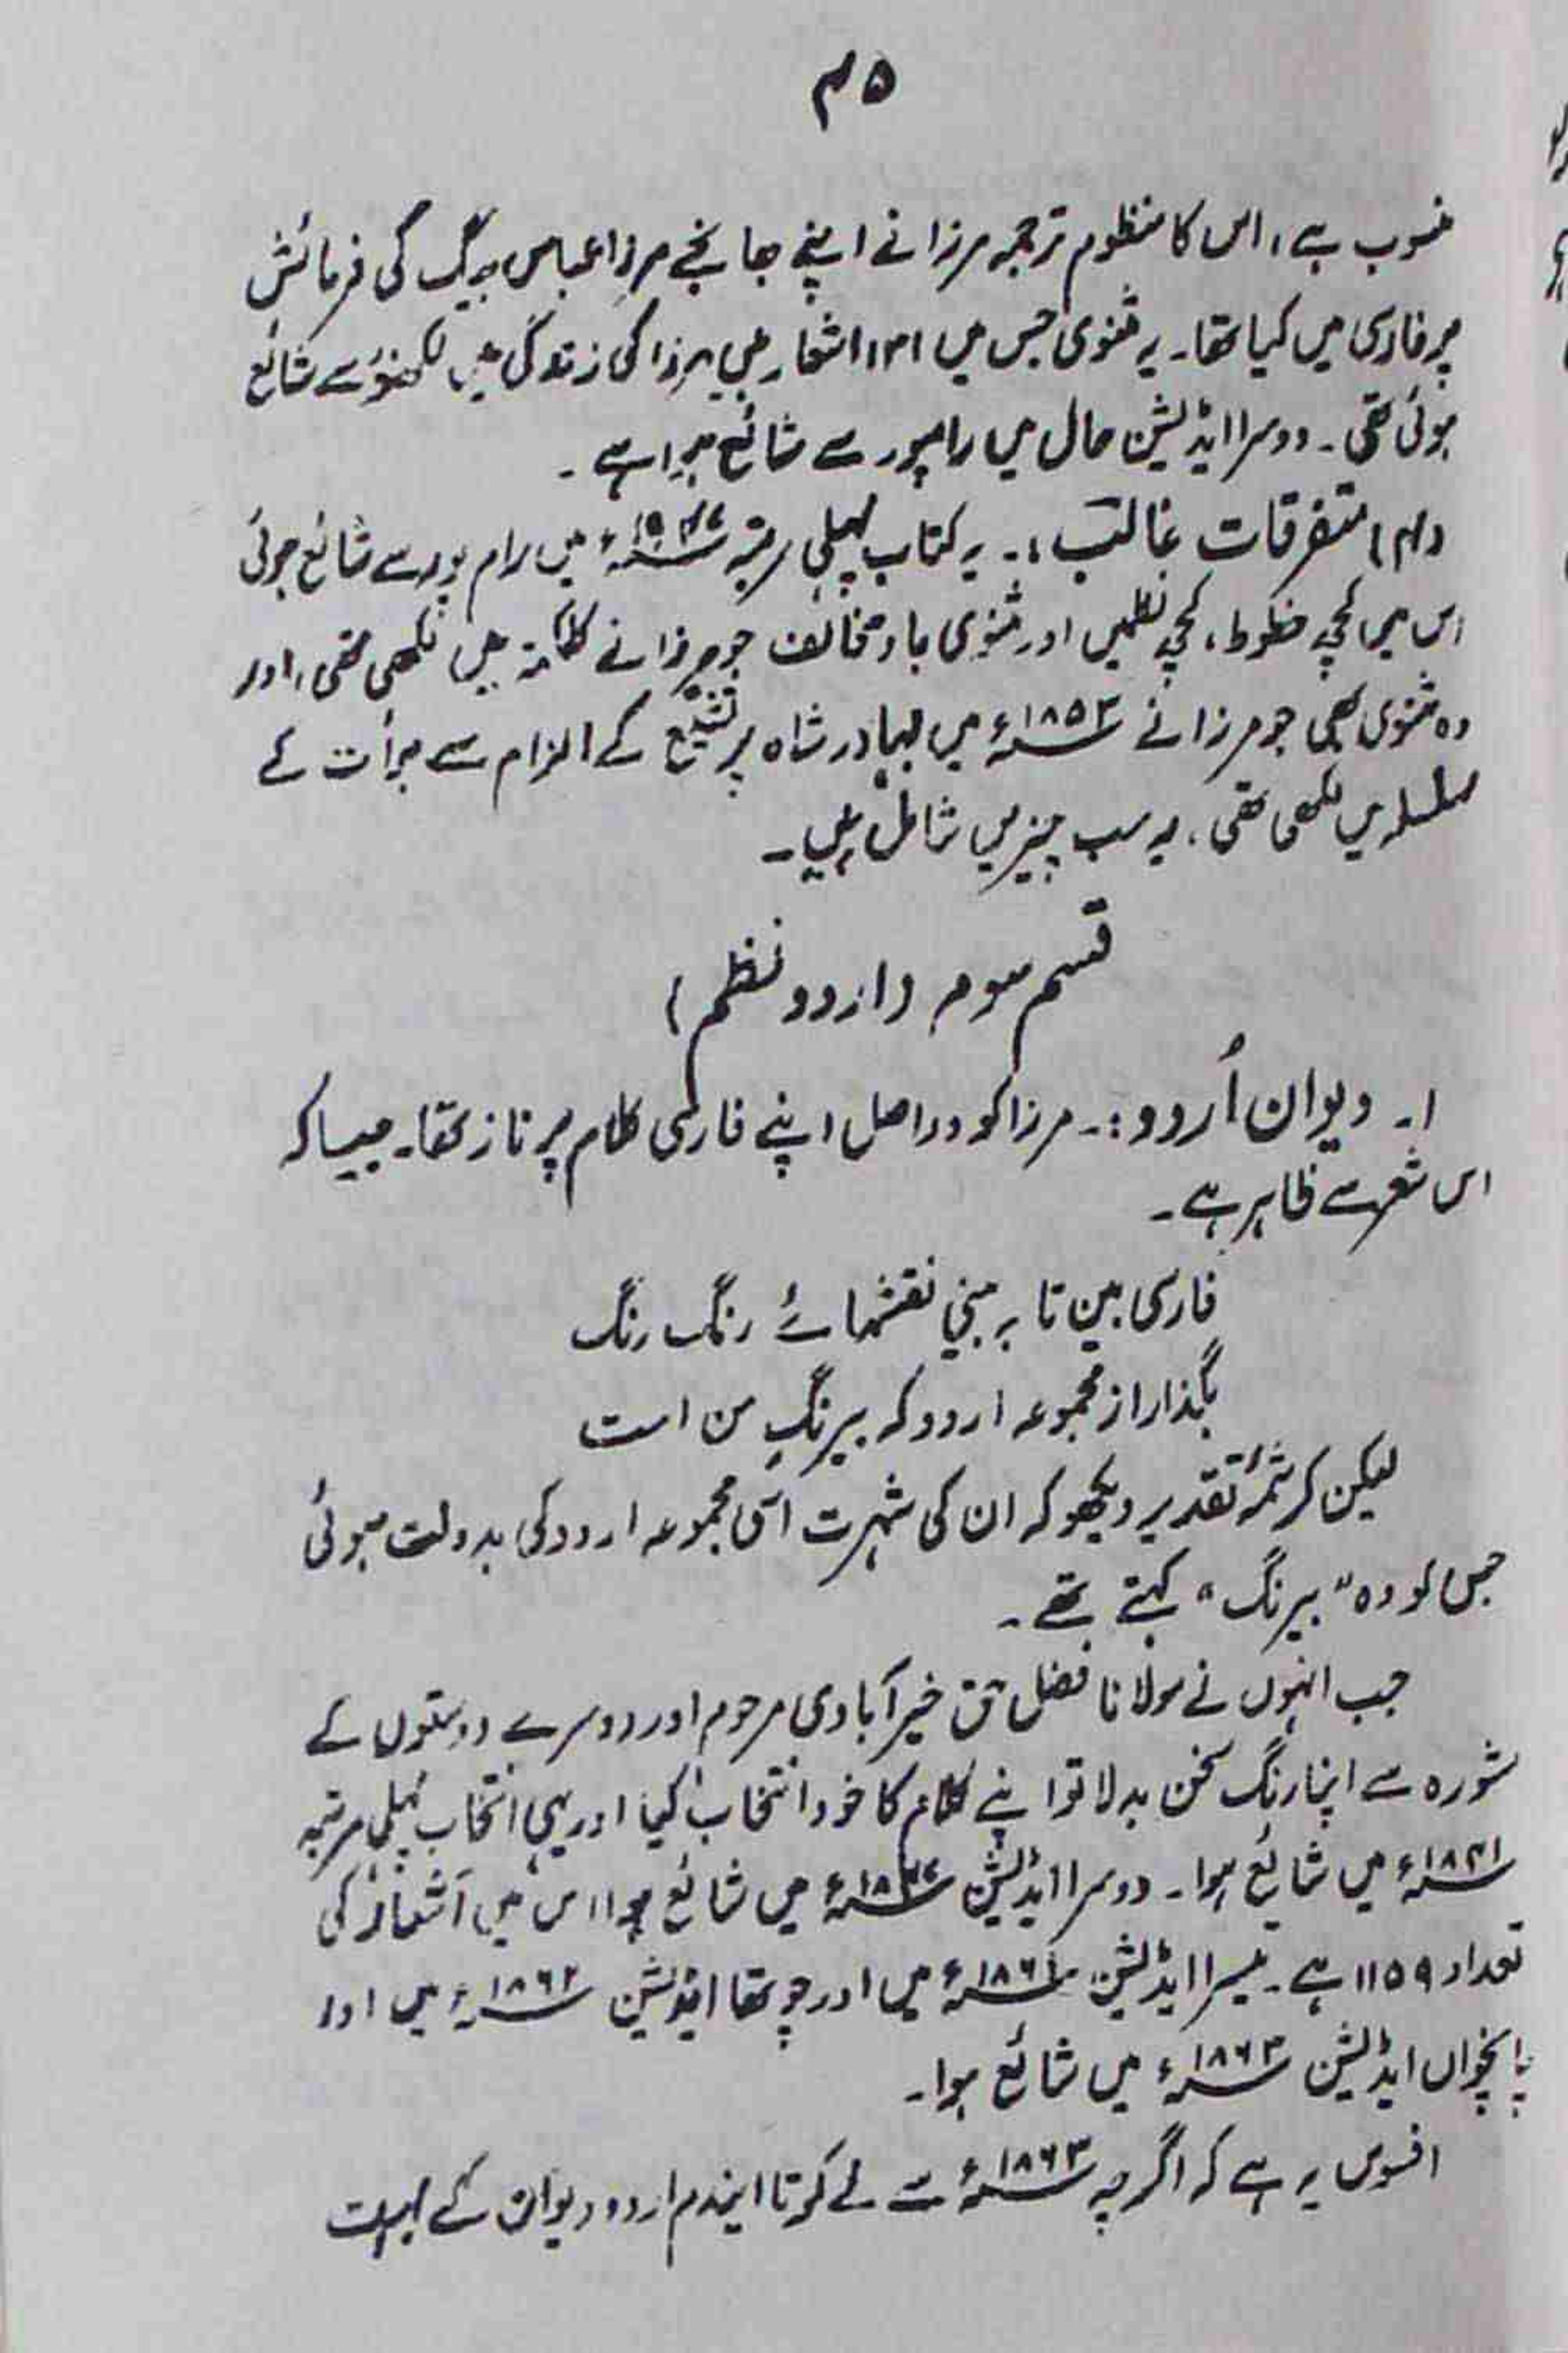 ۴۵
منسوب ہے، اس کا منظوم ترجمہ مرزا نے اپنے بھانجے مرزا عباس بیگ کی فرمائش
پر فارسی میں کیا تھا۔ یہ مثنوی جس میں اشعار ہیں مرزا کی زندگی میں لکھنؤ سے شائع
ہوئی تھی۔ دوسرا ایڈیشن حال میں رامپور سے شائع ہوا ہے۔
(۴) متفرقات غالب:۔ یہ کتاب پہلی مرتبہ ۱۹۴۷ء میں رام پور سے شائع ہوئی
اس میں کچھ خطوط، کچھ نظمیں اور مثنوی باد مخالف جو مرزا نے کلکتہ میں لکھی تھی، اور
وہ مثنوی بھی جو مرزا نے ۱۸۵۳ء میں بہادر شاہ پر تشیع کے الزام سے برأت کے
سلسلہ میں لکھی تھی، یہ سب چیزیں شامل ہیں۔
قسم سوم (اردو نظم)
۱۔ دیوان اُردو:۔ مرزا کو دراصل اپنے فارسی کلام پر ناز تھا۔ جیسا کہ
اس شعر سے ظاہر ہے۔
فارسی بین تا بہ بینی نقشہائے رنگ رنگ
بگذار از مجموعہ اردو کہ بیرنگِ من است
لیکن کرشمۂ تقدیر دیکھو کہ ان کی شہرت اسی مجموعہ اردو کی بدولت ہوئی
جس کو وہ "بیرنگ" کہتے تھے۔
جب انہوں نے مولانا فضل حق خیرآبادی مرحوم اور دوسرے دوستوں کے
مشورہ سے اپنا رنگ سخن بدلا تو اپنے کلام کا خود انتخاب کیا اور یہی انتخاب پہلی مرتبہ
۱۸۴۱ء میں شائع ہوا۔ دوسرا ایڈیشن ۱۸۴۷ء میں شائع ہوا اس میں اشعار کی
تعداد ۱۱۵۹ ہے۔ تیسرا ایڈیشن ۱۸۶۱ء میں اور چوتھا ایڈیشن ۱۸۶۲ء میں اور
پانچواں ایڈیشن ۱۸۶۳ء میں شائع ہوا۔
افسوس یہ ہے کہ اگرچہ ۱۸۶۳ء سے لے کر تا ایندم اردو دیوان کے بہت